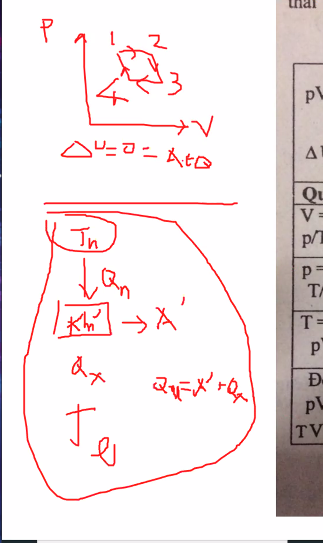 P
1 2
3
4
V
ΔU=0=A+Q
Tn
Qn
→ A'
Qx
Qn=A'+Qx
T
thái
pV
Δ U
Qu
V =
p/T
p =
T/
T =
p
Đo
pV
TV